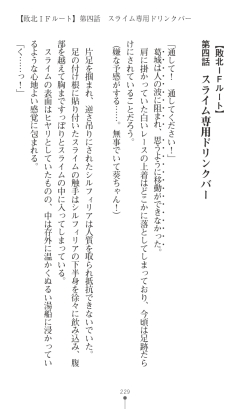 【敗北ＩＦルート】第四話　スライム専用ドリンクバー
【敗北ＩＦルート】
第四話　スライム専用ドリンクバー
「通して！　通してください！」
葛城は人の波に阻まれ、思うように移動ができなかった。
肩に掛かっていた白いレースの上着はどこかに落としてしまっており、今頃は足跡だら
けにされていることだろう。
（嫌な予感がする……、無事でいて葵ちゃん！）
片足を掴まれ、逆さ吊りにされたシルフィリアは人質を取られ抵抗できないでいた。
足の付け根に貼り付いたスライムの触手はシルフィリアの下半身を徐々に飲み込み、腹
部を越えて胸まですっぽりとスライムの中に入ってしまっている。
スライムの表面はヒヤリとしていたものの、中は存外に温かくぬるい湯船に浸かってい
るような心地よい感覚に包まれる。
「く……っ！」
229